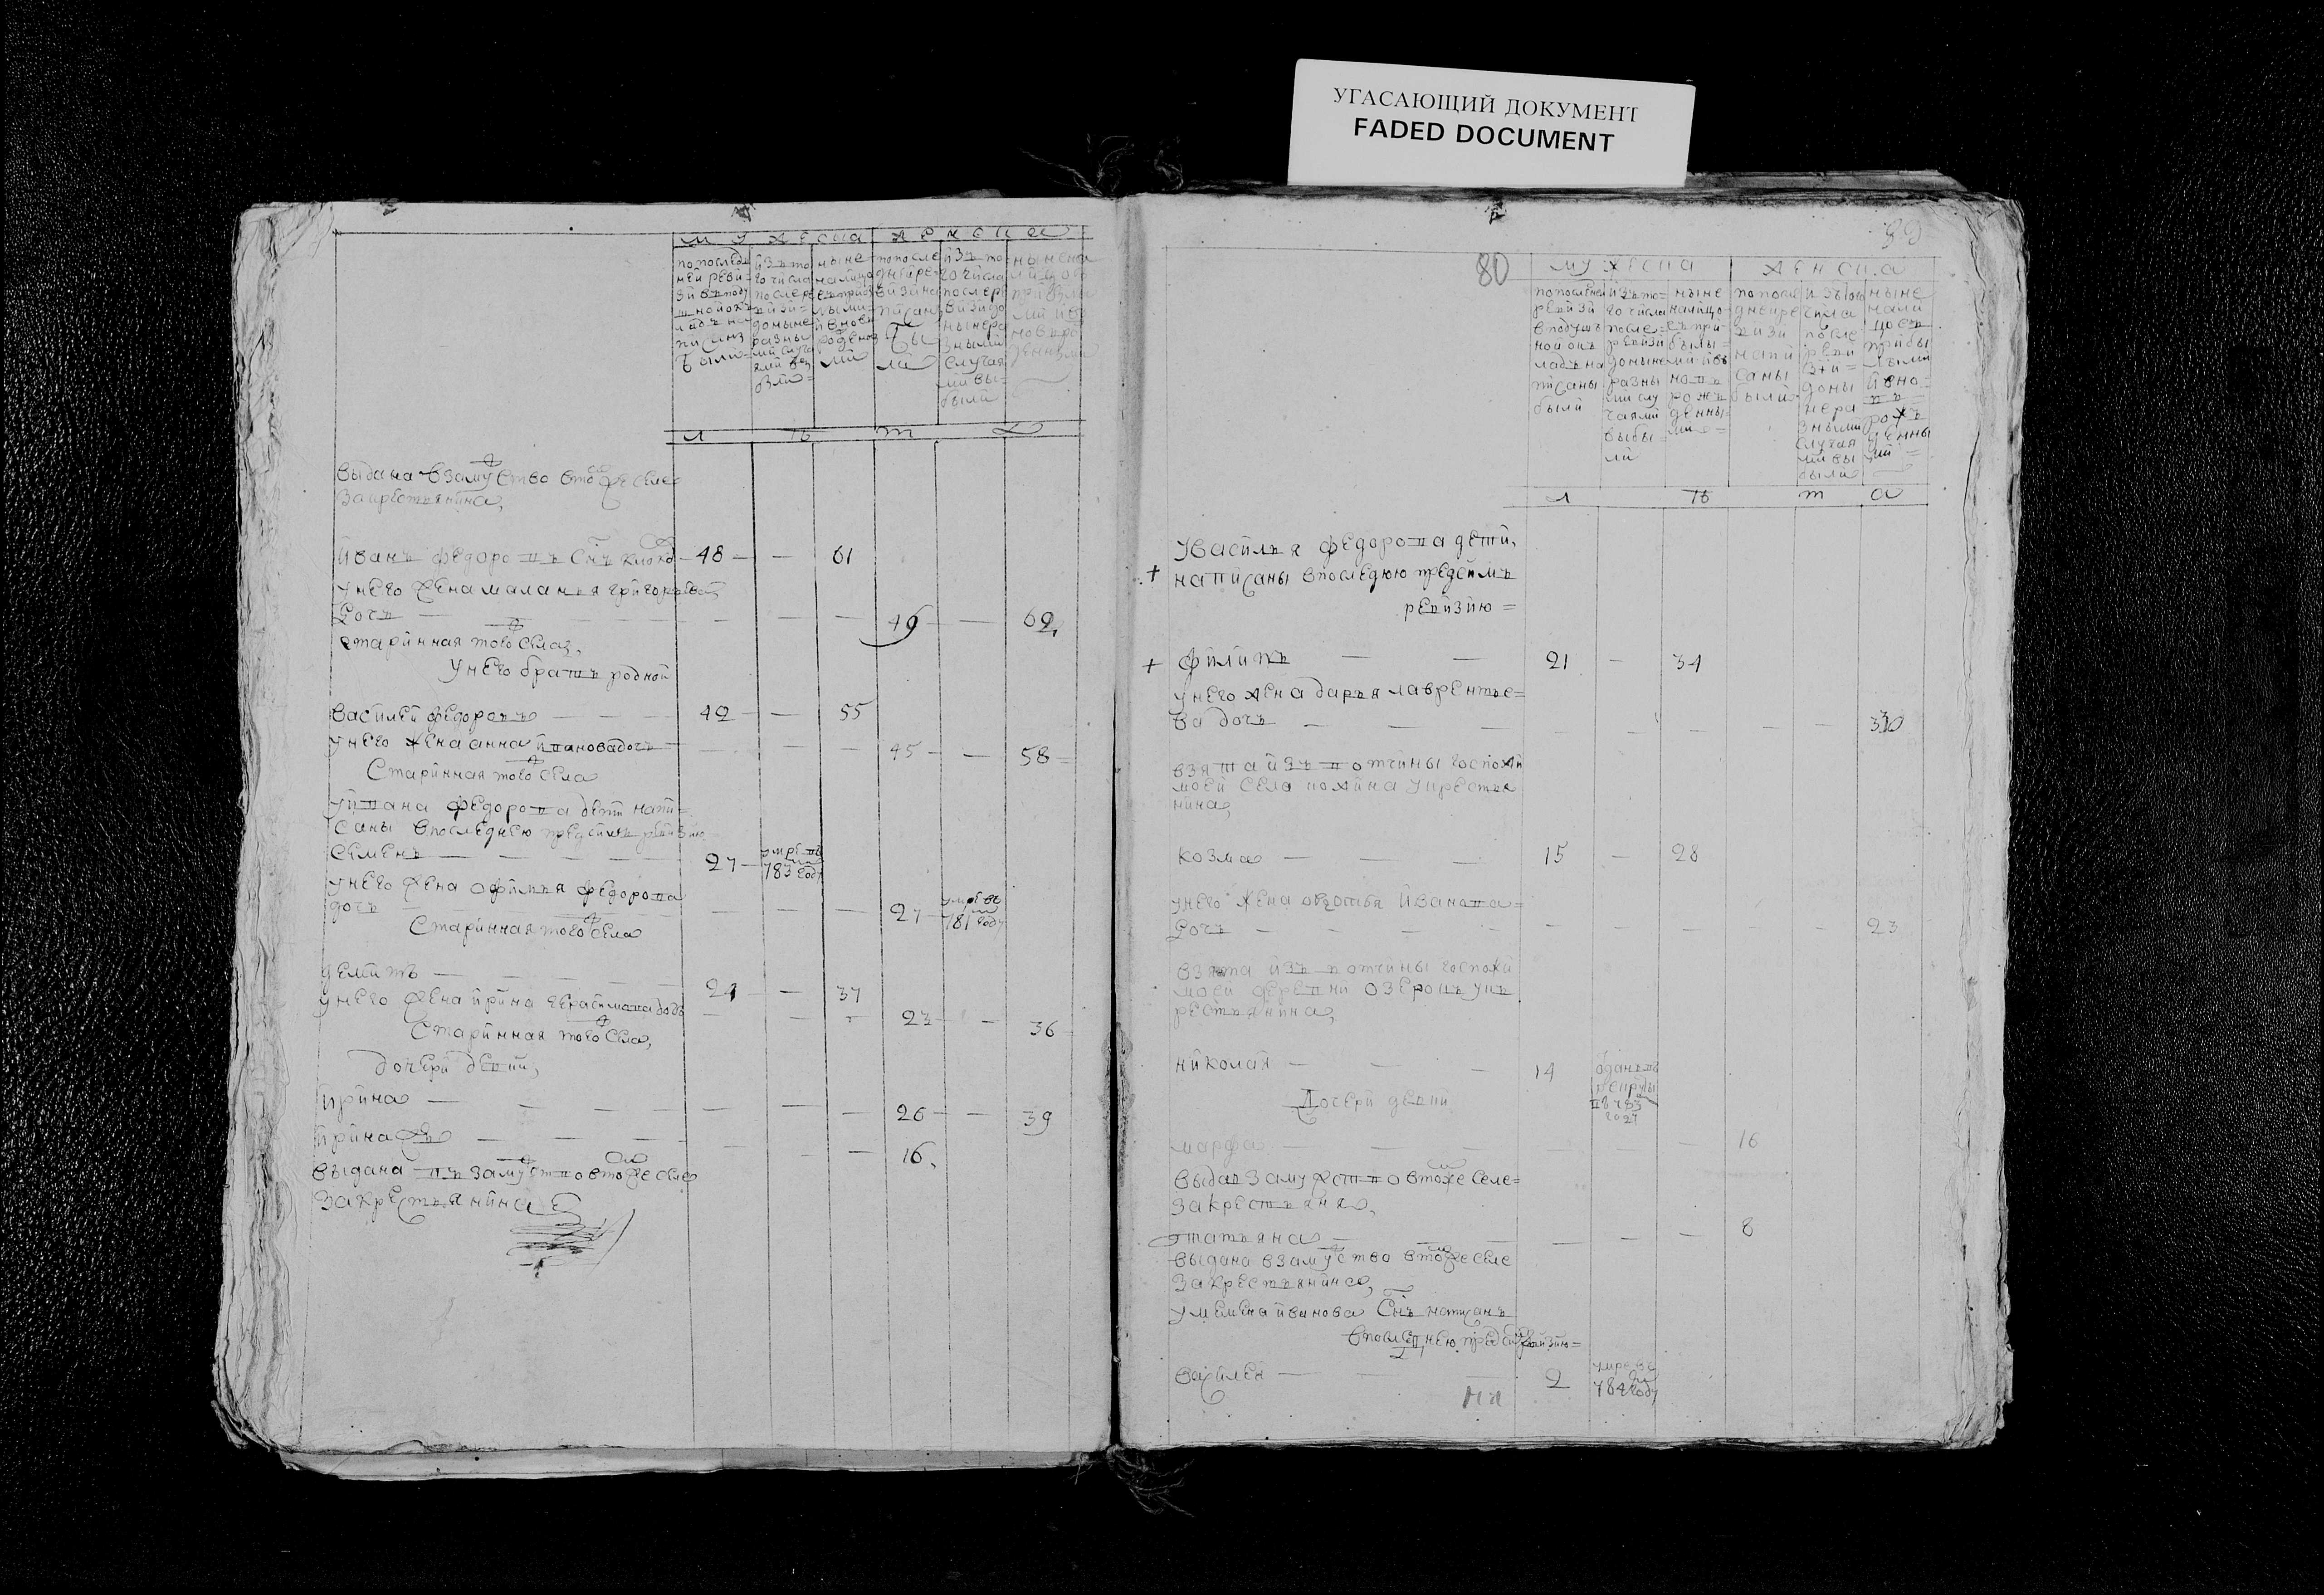 УГАСАЮЩИЙ ДОКУМЕНТ
FADED DOCUMENT
мужеска женска
попоследней ревизии вподушной окладъ написаны были
изътого числа после ревизии доныне разными случаями
ныне налицо спрыбылыми ивновь рожденными
попоследней ревизии написаны были
изътого числа после ревизии доныне разными случаями выбыли
лѣта
выдана взамуство втомже селе
закрестьянина,
иванъ федоровъ снъ
48 — — 61
унего жена маланья григорьева
дочь — — — — 49 — 62
старинная тогож села,
унего братъ родной
василей федоровъ — — — 42 — — 55
унего жена анна ивановадочь — — — 45 — — 58
Старинная тогож села
уивана федорова дети напи=
саны впоследнею предсимъ ревизию
семенъ — — — — 27 — умре въ 783м году
унего жена офимья федорова
дочь — — — 27 умре въ 781м году
Старинная тогож села
демитъ — — — 24 — 37
унего жена ирина герасимовадочь — — — 23 — 36
Старинная тогож села,
дочери девки,
ирина — — — — — — — 26 — — 39
иринаж — — — — — — — 16.
выдана въ замуство втомже селе
закрестьянина
80
мужеска женска
попоследней ревизи вподушной окладъ написаны были
изъто= го числа после ревизи доныне разны ми слу чаями выбы ли
ныне налицо съпри былы= ми ивъ новъ рожъ денны ми =
попосле днейре визи напи саны были
изътого числа после реви зии= доны нера зными случая ми вы были
ныне нали цосъ прибы лыми ивно въ рожъ денны ми =
лѣта
увасилья федорова дети,
+ написаны впоследнюю предсимъ
ревизию =
+ филипъ — — 21 — 34
унего жена дарья лаврентье=
ва дочь — — — — — — — —
взята изъ вотчины госпожи
моей села у крестья
нина,
козма — — — 15 — 28
унего жена иванова=
дочь — — — — — — — — — 23
взята изъ вотчины госпожи
моей деревни озерокъ укъ
рестьянина,
николай — — — 14 отданъ въ рекруты въ 783 году
Дочери девки
марфа — — — — — — 16
выдана замужство втомже селе=
закрестьяня,
татьяна — — — — — — 8
выдана взамуство втомже селе
закрестьянина,
усемена иванова снъ написанъ
впоследнею предсимъ ревизию=
василей — — — 2 умре въ 784м году